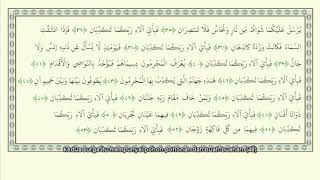 يُرْسَلُ عَلَيْكُمَا شُوَاظٌ مِن نَّارٍ وَنُحَاسٌ فَلَا تَنتَصِرَانِ ﴿٣٥﴾ فَبِأَيِّ آلَاءِ رَبِّكُمَا تُكَذِّبَانِ ﴿٣٦﴾ فَإِذَا انشَقَّتِ
السَّمَاءُ فَكَانَتْ وَرْدَةً كَالدِّهَانِ ﴿٣٧﴾ فَبِأَيِّ آلَاءِ رَبِّكُمَا تُكَذِّبَانِ ﴿٣٨﴾ فَيَوْمَئِذٍ لَّا يُسْأَلُ عَن ذَنبِهِ إِنسٌ وَلَا
جَانٌّ ﴿٣٩﴾ فَبِأَيِّ آلَاءِ رَبِّكُمَا تُكَذِّبَانِ ﴿٤٠﴾ يُعْرَفُ الْمُجْرِمُونَ بِسِيمَاهُمْ فَيُؤْخَذُ بِالنَّوَاصِي وَالْأَقْدَامِ ﴿٤١﴾
فَبِأَيِّ آلَاءِ رَبِّكُمَا تُكَذِّبَانِ ﴿٤٢﴾ هَٰذِهِ جَهَنَّمُ الَّتِي يُكَذِّبُ بِهَا الْمُجْرِمُونَ ﴿٤٣﴾ يَطُوفُونَ بَيْنَهَا وَبَيْنَ حَمِيمٍ آنٍ ﴿٤٤﴾
فَبِأَيِّ آلَاءِ رَبِّكُمَا تُكَذِّبَانِ ﴿٤٥﴾ وَلِمَنْ خَافَ مَقَامَ رَبِّهِ جَنَّتَانِ ﴿٤٦﴾ فَبِأَيِّ آلَاءِ رَبِّكُمَا تُكَذِّبَانِ ﴿٤٧﴾ ذَوَاتَا
أَفْنَانٍ ﴿٤٨﴾ فَبِأَيِّ آلَاءِ رَبِّكُمَا تُكَذِّبَانِ ﴿٤٩﴾ فِيهِمَا عَيْنَانِ تَجْرِيَانِ ﴿٥٠﴾ فَبِأَيِّ آلَاءِ
رَبِّكُمَا تُكَذِّبَانِ ﴿٥١﴾ فِيهِمَا مِن كُلِّ فَاكِهَةٍ زَوْجَانِ ﴿٥٢﴾ فَبِأَيِّ آلَاءِ رَبِّكُمَا تُكَذِّبَانِ ﴿٥٣﴾
kedua surga itu mempunyai pohon-pohonan dan buah-buahan [48]